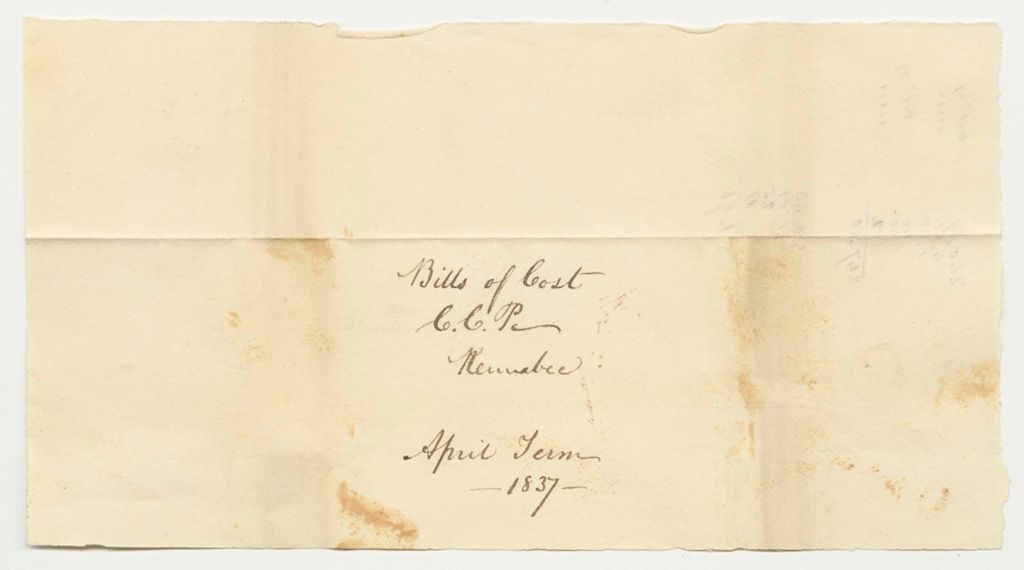 Bills of Cost
C.C.P.
Kennebec
April Term
— 1837 —